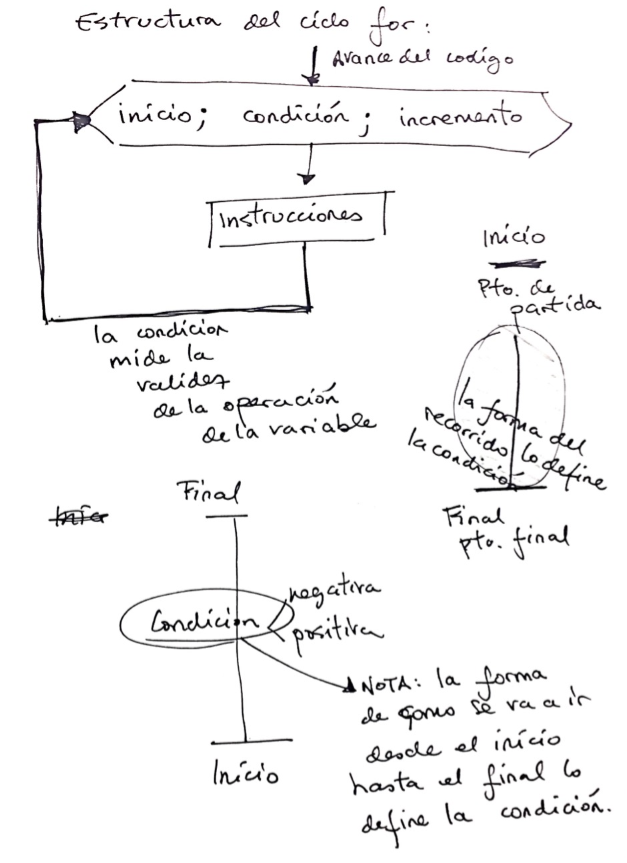 Estructura del ciclo for:
Avance del codigo
inicio; condición; incremento
instrucciones
la condicion
mide la
validez
de la operación
de la variable
Inicio
Pto. de
partida
la forma del
recorrido lo define
la condición
Final
pto. final
Final
Inic
Condición
negativa
positiva
Inicio
NOTA: la forma
de como se va a ir
desde el inicio
hasta el final lo
define la condición.